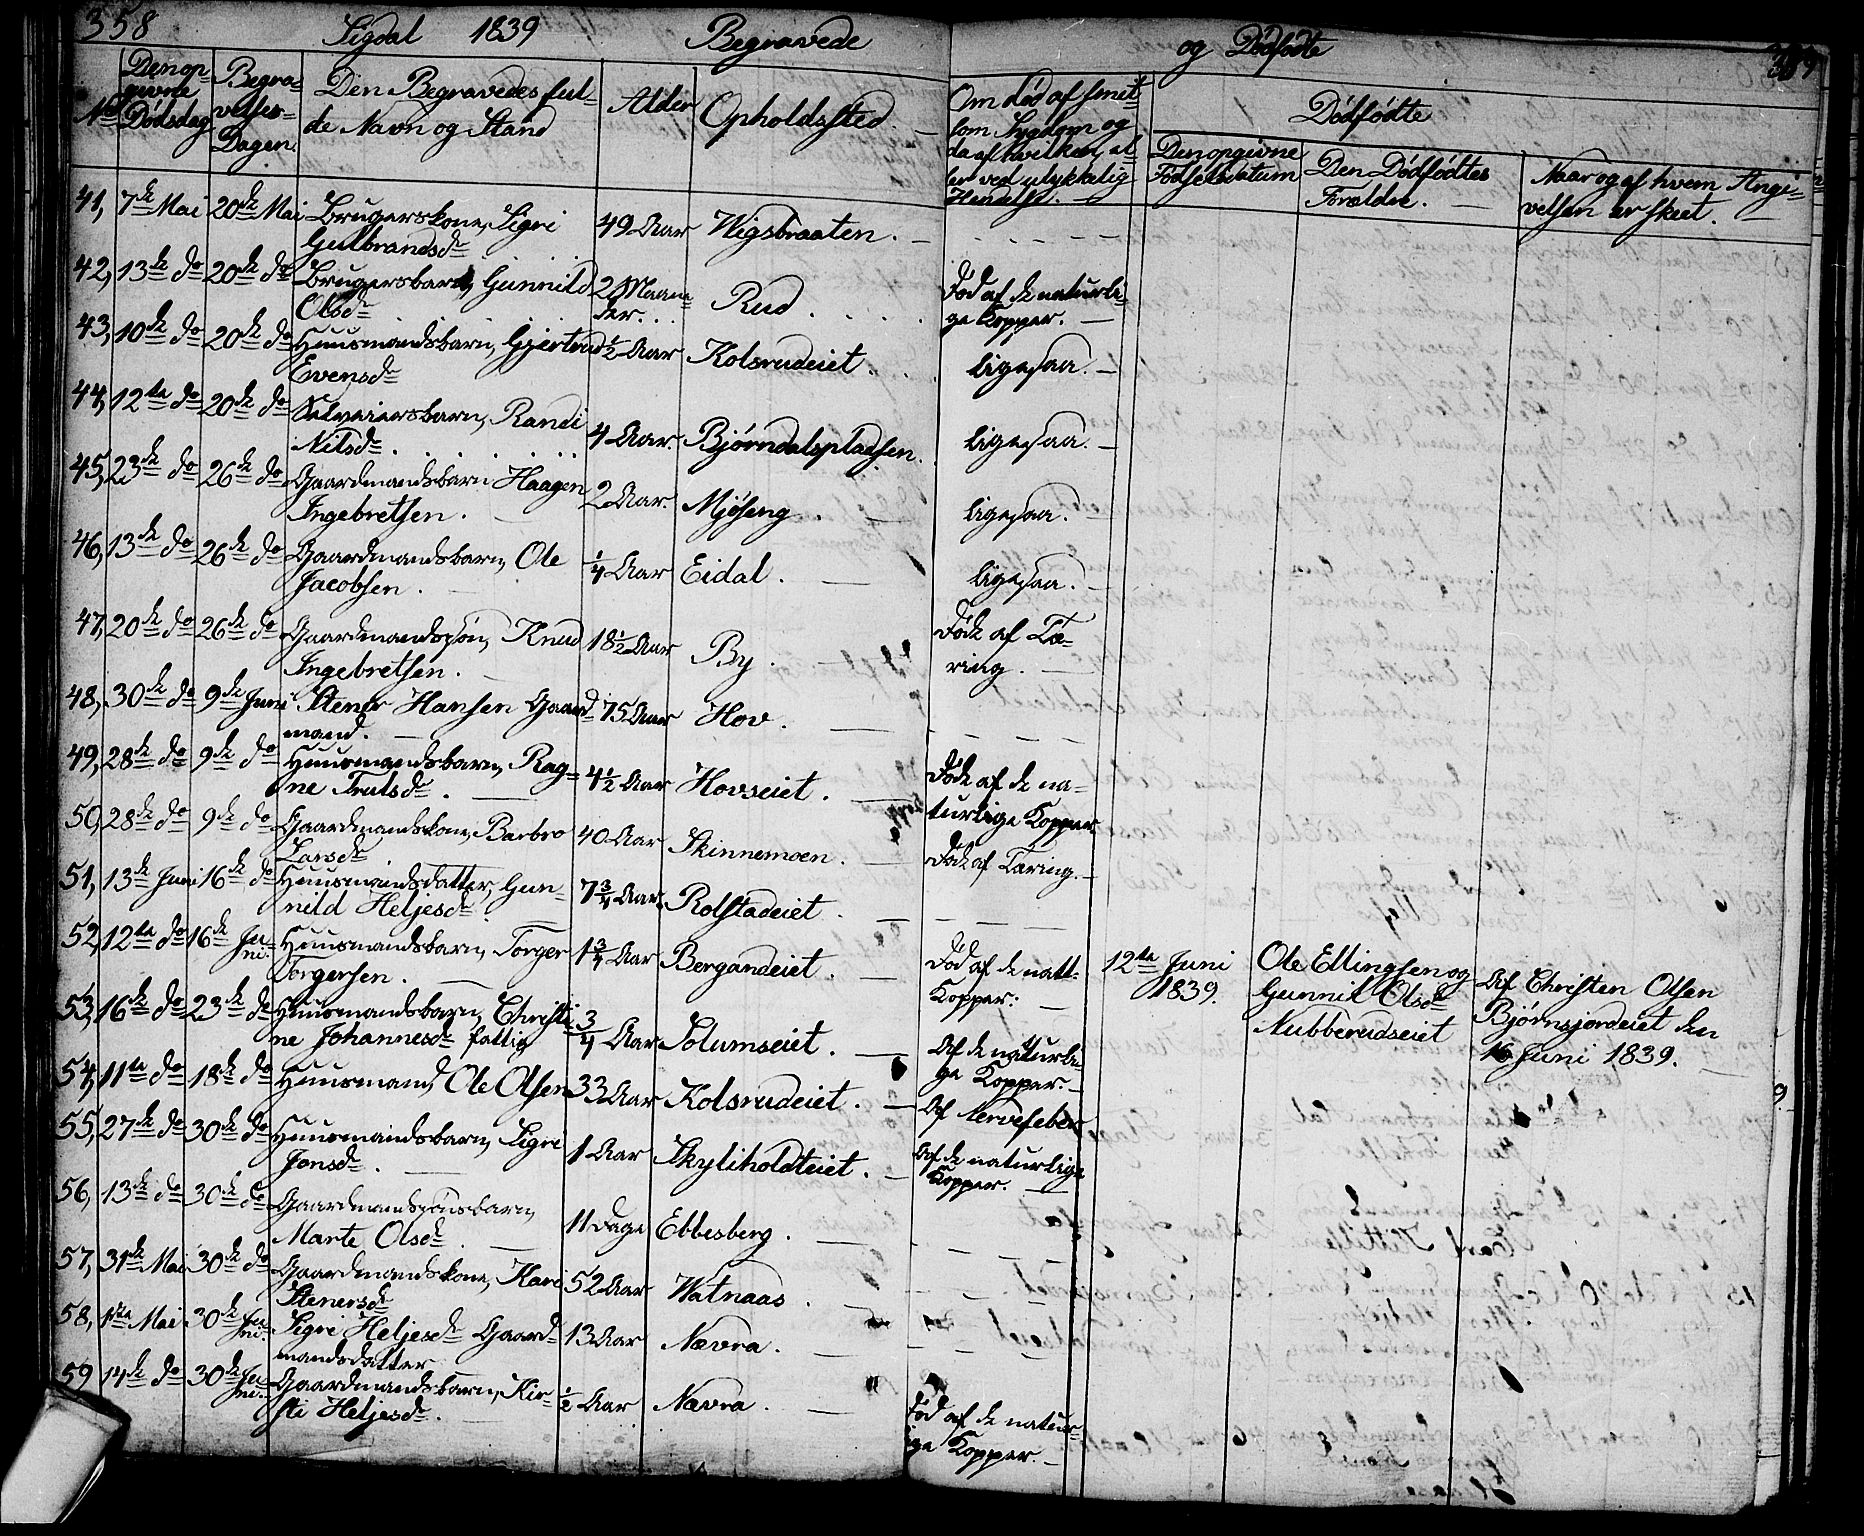 358 Sigdal 1839 Begravede og Dødfødte 359
No Den opgivne Dødsdag Begravelses-Dagen. Den Begravedes fulde Navn og Stand Alder Opholdssted. Om død af smitsom Sygdom og da af hvilken, eller ved ulykkelig Hendelse. Dødfødte
Den opgivne Fødselsdatum Den Dødfødtes Forældre. Naar og af hvem Angivelsen er skeet.
41, 7de Mai 20de Mai Brugerskone, Sigri
Gulbrandsdr 49 Aar Wigsbraaten.
42, 13de do 20de do Brugersbarn, Gunnild
Olsdr 2 Maaneder. Rud. Død af de naturlige Kopper.
43, 10de do 20de do Huusmandsbarn, Gjertrud
Evensdr ½ Aar Kolsrudeiet. ligesaa.
44, 12te do 20de do Selveiersbarn, Randi
Nilsdr. 4 Aar. Bjørndalspladsen. ligesaa.
45, 23de do 26de do Gaardmandsbarn Haagen
Ingebretsen. 2 Aar. Mjøseng. ligesaa.
46, 13de do 26de do Gaardmandsbarn, Ole
Jacobsen. ¼ Aar Eidal. ligesaa.
47, 20de do 26de do Gaardmandssøn, Knud
Ingebretsen. 18½ Aar By. Døde af Tæring.
48, 30de do 9de Juni Stener Hansen Gaardmand. 75 Aar Hov.
49, 28de do 9de do Huusmandsbarn, Ragne Trulsdr. 4½ Aar Hovseiet. Døde af de naturlige Kopper
50, 28de do 9de do Gaardmandskone, Barbro
Larsdr 40 Aar Skinnemoen. Døde af Tæring.
51, 13de Juni 16de do Huusmandsdatter, Gunnild Heljesdr. 7¾ Aar. Rolstadeiet.
52, 12te do 16de Juni. Huusmandsbarn, Torger
Torgersen. 1¾ Aar Bergandeiet. Død af de natt: Kopper: 12te Juni 1839. Ole Ellingsen og Gunnil Olsdr Nubberudseiet Af Christen Olsen Bjørnsjordeiet den 16 Juni 1839.
53, 16de do 23de do Huusmandsbarn, Christine Johannesdr fattig ¾ Aar Solumseiet. Af de naturlige Kopper
54, 11te do 18de do Huusmand, Ole Olsen 33 Aar Kolsrudeiet. Af Nervefeber
55, 27de do 30de do Huusmandsbarn, Sigri
Jonsdr. 1 Aar Skyliholdteiet. Af de naturlige Kopper.
56, 13de do 30de do Gaardmandssønsbarn,
Marte Olsdr. 11 Dage Ebbesberg.
57, 31de Mai 30de do Gaardmandskone, Kari
Stenersdr 52 Aar Watnaas.
58, 1ste Mai 30de Juni. Sigri Heljesdr Gaardmandsdatter 13 Aar Nævra.
59 14de do 30de Juni. Gaardmandsbarn, Kirsti Heljesdr. ½ Aar Nævra. Død af de naturlige Kopper.